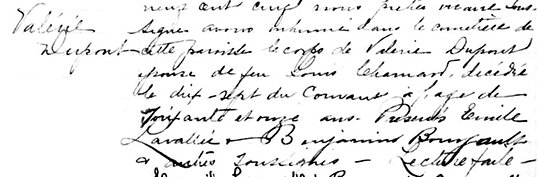 neuf cent cinq nous prêtre vicaire sous-
Valérie signé avons inhumé dans le cimetière de
Dupont cette paroisse le corps de Valérie Dupont
épouse de feu Louis Chamard, décédée
le dix-sept du courant à l'age de
soixante et onze ans. Présents Emile
Lavallée & Benjamin Bourgault
& autres soussignés - Lecture faite -